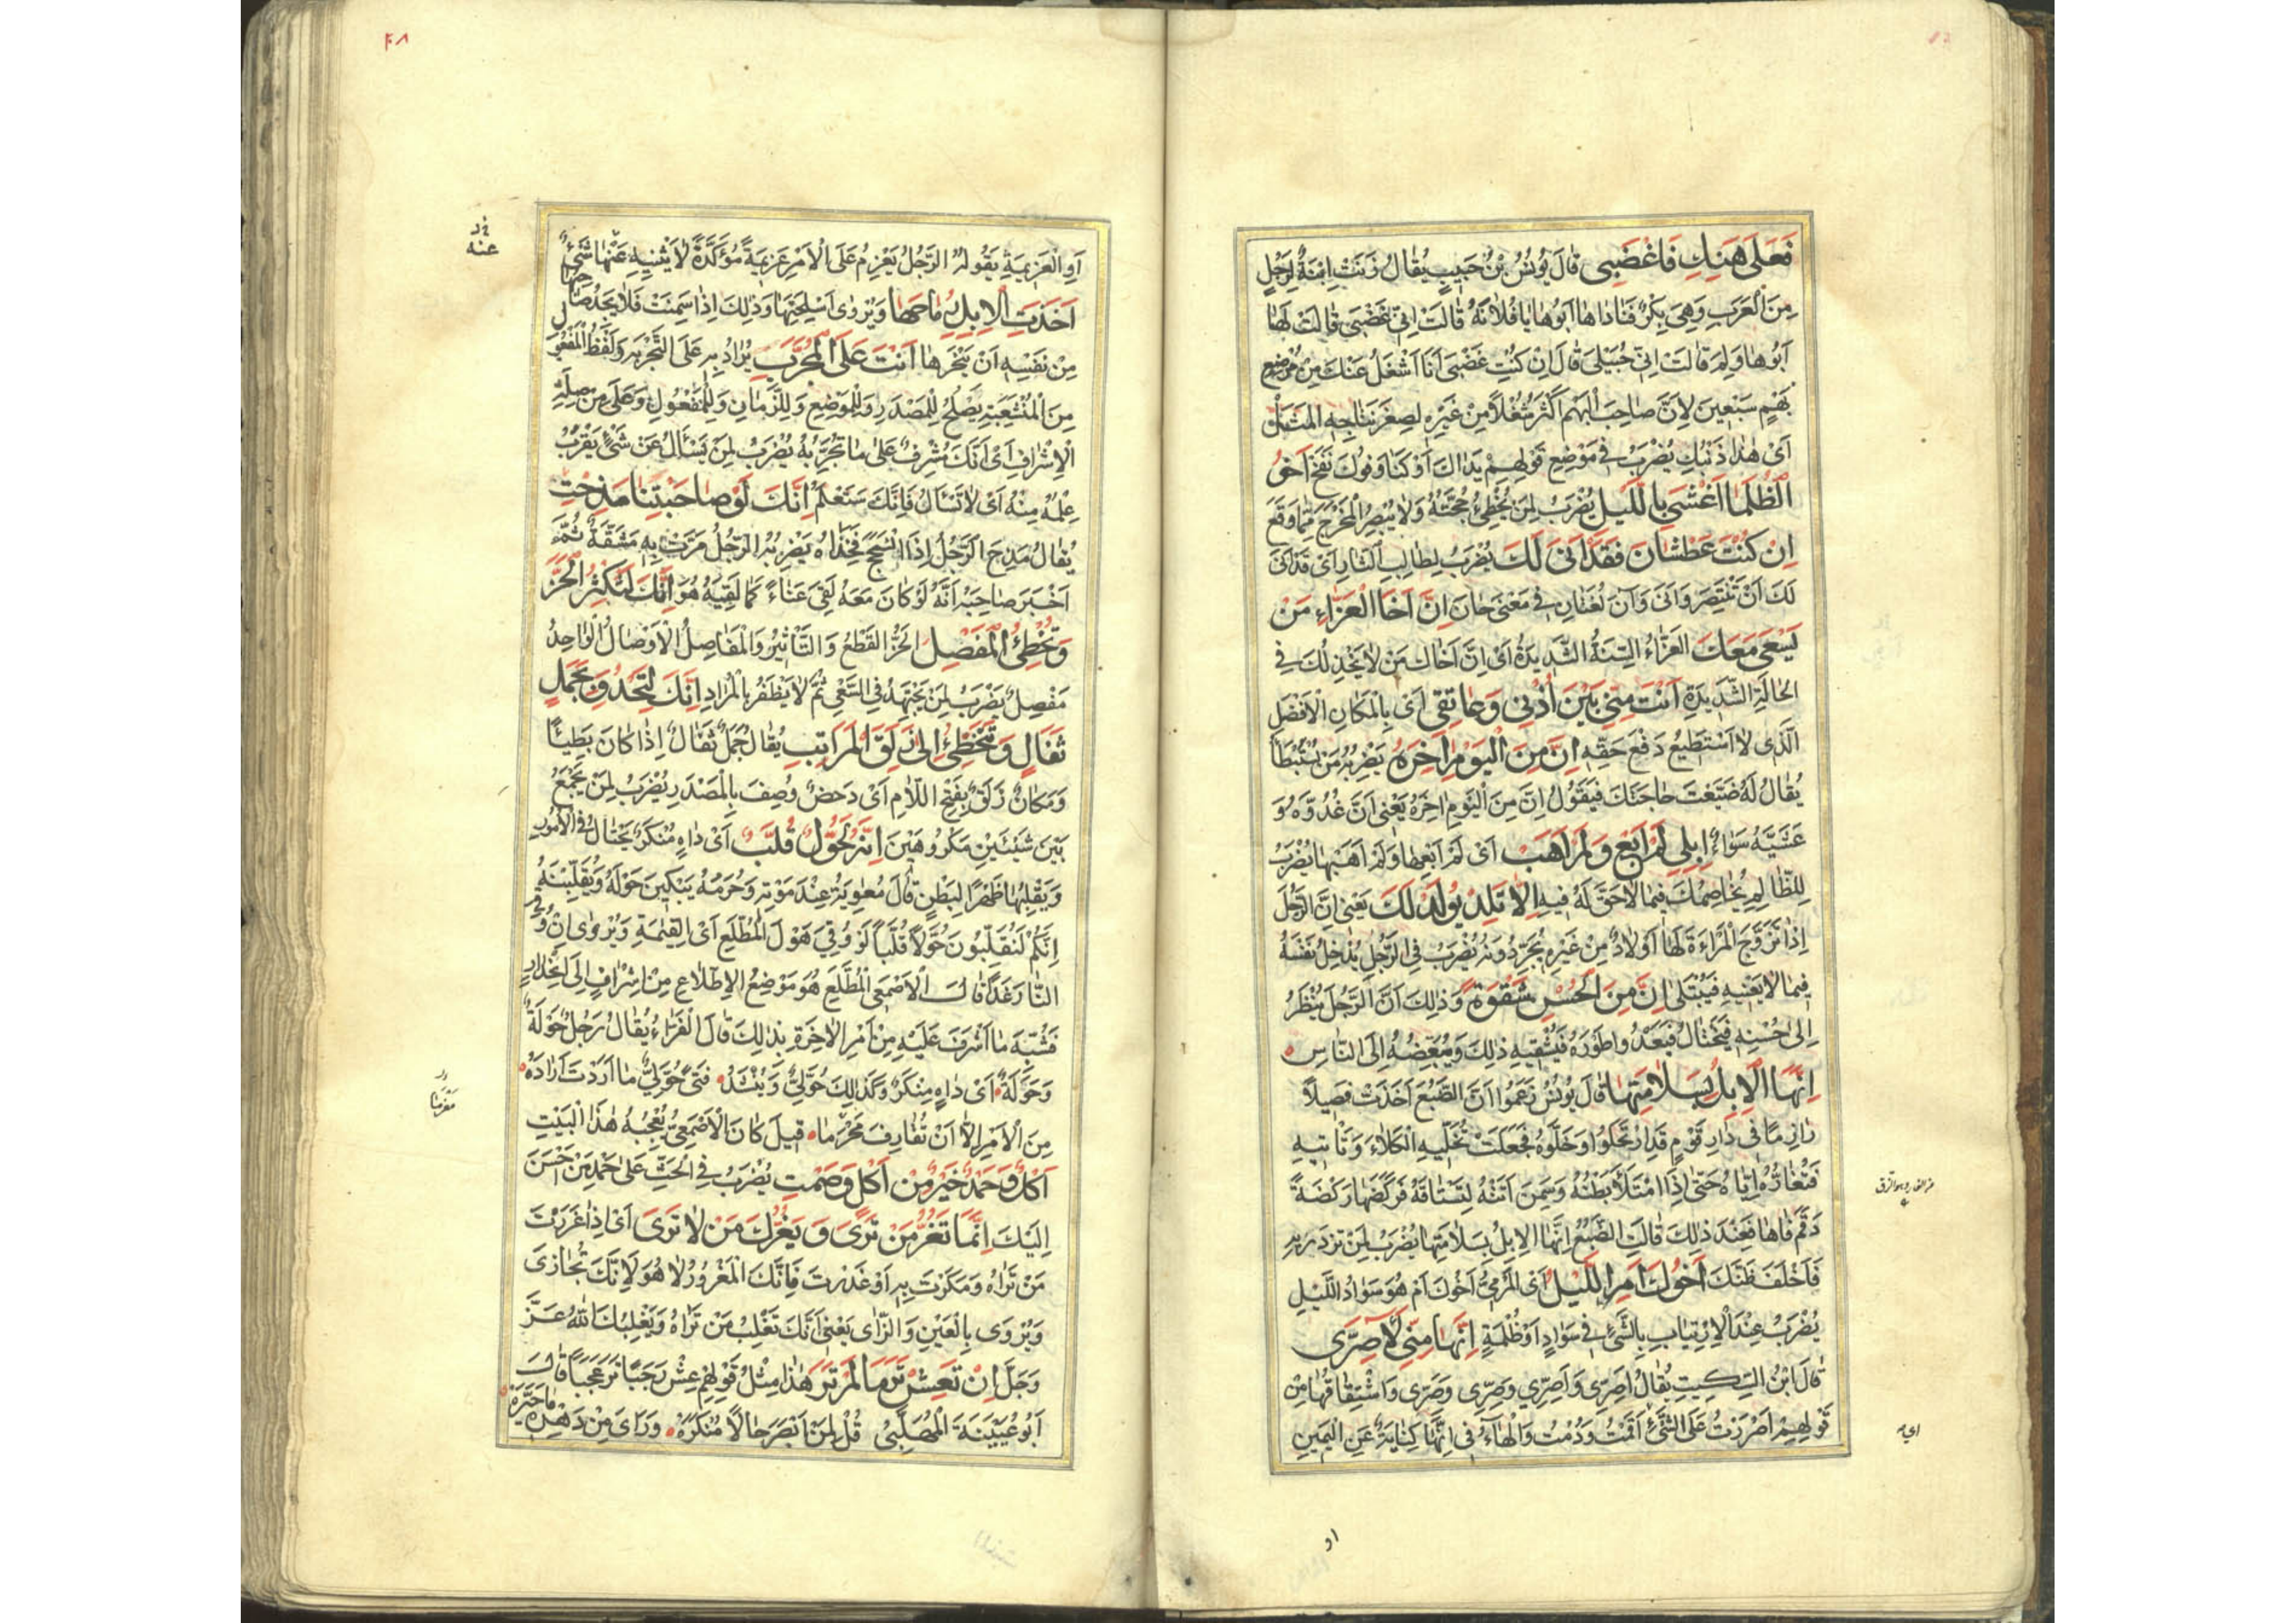 فَعَلَى هَنِكِ فَاغْضَبِى قَالَ يُونُسُ بْنُ حَبِيبٍ يُقَالُ زَنَتْ اِبْنَةٌ لِرَجُلٍ
مِنَ الْعَرَبِ وَهِىَ بِكْرٌ فَنَادَاهَا اَبُوهَا يَا فُلَانَةُ قَالَتْ اِنِّى غَضْبَى قَالَ لَهَا
اَبُوهَا وَلِمَ قَالَتْ اِنِّى حُبْلَى قَالَ اِنْ كُنْتِ غَضْبَى اَنَا اَشْغَلُ عَنْكَ مِنْ مُوضِعِ
بَهْمِ سَبْعِينَ لِاَنَّ صَاحِبَ الْبَهْمِ اَكْثَرُ شُغْلًا مِنْ غَيْرِهِ لِصِغَرِ نَتَاجِهِ المَثَلُ
اَىْ هٰذَا ذَنْبُكِ يُضْرَبُ فِى مَوْضِعِ قَوْلِهِمْ يَدَاكَ اَوْكَتَا وَفُوكَ نَفَخَ اَخُو
الظَّلْمَا اَعْشَى بِاللَّيْلِ يُضْرَبُ لِمَنْ يُخْطِئُ حُجَّتَهُ وَلَا يُبْصِرُ الْمَخْرَجَ مِمَّا وَقَعَ
اِنْ كُنْتَ عَطْشَانَ فَقَدْ اَنَى لَكَ يُضْرَبُ لِطَالِبِ الثَّارِ اَىْ قَدْ اَنَى
لَكَ اَنْ تَنْتَصِرَ وَاَنَى وَآنَ لُغَتَانِ فِى مَعْنَى حَانَ اِنَّ اَخَا الْعَزَّاءِ مَنْ
يَسْعَى مَعَكَ الْعَزَّاءُ السَّنَةُ الشَّدِيدَةُ اَىْ اِنَّ اَخَاكَ مَنْ لَا يَخْذُلُكَ فِى
الْحَالَةِ الشَّدِيدَةِ اَنْتَ مِنِّى بَيْنَ اُذْنِى وَعَاتِقِى اَىْ بِالْمَكَانِ الْاَفْضَلِ
الَّذِى لَا اَسْتَطِيعُ دَفْعَ حَقِّهِ اِنَّ مِنَ الْيَوْمِ اٰخِرَهُ يَضْرِبُهُ مَنْ يُسْتَبْطَأُ
يُقَالُ لَهُ ضَيَّعْتَ حَاجَتَكَ فَيَقُولُ اِنَّ مِنَ الْيَوْمِ اٰخِرَهُ يَعْنِى اَنَّ غُدُوَّهُ وَ
عَشِيَّهُ سَوَاءٌ اِبِلِى لَمْ اَبِعْ وَلَمْ اَهَبْ اَىْ لَمْ اَبِعْهَا وَلَمْ اَهَبْهَا يُضْرَبُ
لِلظَّالِمِ يُخَاصِمُكَ فِيمَا لَا حَقَّ لَهُ فِيهِ اِلَّا تَلِدْ يُولَدْ لَكَ يَعْنِى اِنَّ الرَّجُلَ
اِذَا تَزَوَّجَ الْمَرْاَةَ لَهَا اَوْلَادٌ مِنْ غَيْرِهِ يُضْرَبُ فِى الرَّجُلِ يُدْخِلُ نَفْسَهُ
فِيمَا لَا يَعْنِيهِ فَيُبْتَلَى اِنَّ مِنَ الْحُسْنِ شَقْوَةً وَذٰلِكَ اَنَّ الرَّجُلَ يَنْظُرُ
اِلَى حُسْنِهِ فَيَخْتَالُ فَيَعْدُو اَطْوَرَهُ فَيُشْقِيهِ ذٰلِكَ وَيُبَغِّضُهُ اِلَى النَّاسِ
اِنَّهَا الْاِبِلُ بِسَلَامَتِهَا قَالَ يُونُسُ زَعَمُوا اَنَّ الضَّبُعَ اَخَذَتْ فَصِيلًا
رَازِمًا فِى دَارِ قَوْمٍ قَدِ ارْتَحَلُوا وَخَلَّوْهُ فَجَعَلَتْ تُخَلِّيهِ الْكَلَاءَ وَتَأْتِيهِ
فَتُغَارُّهُ اِيَّاهُ حَتَّى اِذَا امْتَلَأَ بَطْنُهُ وَسَمِنَ اَتَتْهُ لِتَسْتَاقَهُ فَرَكَضَهَا رَكْضَةً
دَقَمَ فَاهَا فَعِنْدَ ذٰلِكَ قَالَتِ الضَّبُعُ اِنَّهَا الْاِبِلُ بِسَلَامَتِهَا يُضْرَبُ لِمَنْ تَزْدَرِيهِ
فَاَخْلَفَ ظَنَّكَ اَخُوكَ اَمِ اللَّيْلُ اَىْ الْمَرْئِىُّ اَخُوكَ اَمْ هُوَ سَوَادُ اللَّيْلِ
يُضْرَبُ عِنْدَ الْاِرْتِيَابِ بِالشَّىْءِ فِى سَوَادٍ اَوْ ظُلْمَةٍ اِنَّهَا مِنِّى لَاَصِرَّى
قَالَ ابْنُ السِّكِّيتِ يُقَالُ اَصِرَّى وَاَصِرِّى وَصِرِّى وَصِرَّى وَاشْتِقَاقُهَا مِنْ
قَوْلِهِمْ اَصْرَرْتُ عَلَى الشَّىْءِ اَقَمْتُ وَدُمْتُ وَالْهَاءُ فِى اِنَّهَا كِنَايَةٌ عَنِ الْيَمِينِ
او
٤٨
اَوِ الْعَزِيمَةِ يَقُولُهُ الرَّجُلُ يَعْزِمُ عَلَى الْاَمْرِ عَزِيمَةً مُؤَكَّدَةً لَا يَثْنِيهِ عَنْهَا شَىْءٌ
عنه
اَخَذَتِ الْاِبِلُ رِمَاحَهَا وَيُرْوَى اَسْلِحَتَهَا وَذٰلِكَ اِذَا سَمِنَتْ فَلَا يَجِدُ صَاحِبُهَا
مِنْ نَفْسِهِ اَنْ يَنْحَرَهَا اَنْتَ عَلَى الْمُجَرَّبِ يُرَادُ بِهِ عَلَى التَّجْرِبَةِ وَلَفْظُ الْمَفْعُولِ
مِنَ الْمُنْشَعِبَةِ يَصْلُحُ لِلْمَصْدَرِ وَلِلْمَوْضِعِ وَلِلزَّمَانِ وَلِلْمَفْعُولِ وَعَلَى مِنْ صِلَةِ
الْاِشْرَافِ اَىْ اَنَّكَ مُشْرِفٌ عَلَى مَا تُجَرِّبُهُ يُضْرَبُ لِمَنْ يَسْاَلُ عَنْ شَىْءٍ يَقْرُبُ
عِلْمُهُ مِنْهُ اَىْ لَا تَسْأَلْ فَاِنَّكَ سَتَعْلَمُ اِنَّكَ لَوْ صَاحَبْتَنَا مَذِحْتَ
يُقَالُ مَذِحَ الرَّجُلُ اِذَا انْسَحَجَ فَخِذَاهُ يَضْرِبُهُ الرَّجُلُ مَرَّتْ بِهِ مَشَقَّةٌ ثُمَّ
اَخْبَرَ صَاحِبَهُ اَنَّهُ لَوْ كَانَ مَعَهُ لَقِىَ عَنَاءً كَمَا لَقِيَهُ هُوَ اِنَّكَ لَتُكْثِرُ الْحَزَّ
وَتُخْطِئُ الْمَفْصِلَ الْحَزُّ الْقَطْعُ وَالتَّأْثِيرُ وَالْمَفَاصِلُ الْاَوْصَالُ الْوَاحِدُ
مَفْصِلٌ يَضْرِبُ لِمَنْ يَجْتَهِدُ فِى السَّعْىِ ثُمَّ لَا يَظْفَرُ بِالْمُرَادِ اِنَّكَ لَتَحْدُو بِجَمَلٍ
ثَفَالٍ وَتَتَخَطَّى اِلَى زَلَقِ الْمَرَاتِبِ يُقَالُ جَمَلٌ ثَفَالٌ اِذَا كَانَ بَطِيئًا
وَمَكَانٌ زَلَقٌ بِفَتْحِ اللَّامِ اَىْ دَحَضٌ وُصِفَ بِالْمَصْدَرِ يُضْرَبُ لِمَنْ يَجْمَعُ
بَيْنَ شَيْئَيْنِ مَكْرُوهَيْنِ اِنَّهُ لَحُوَّلٌ قُلَّبٌ اَىْ دَاهٍ مُنْكَرٌ يَحْتَالُ فِى الْاُمُورِ
وَيَقْلِبُهَا ظَهْرًا لِبَطْنٍ قَالَ مُعٰوِيَةُ عِنْدَ مَوْتِهِ وَحُرَمُهُ يَبْكِينَ حَوْلَهُ وَيُقَلِّبْنَهُ
اِنَّكُمْ لَتُقَلِّبُونَ حُوَّلًا قُلَّبًا لَوْ وُقِىَ هَوْلَ الْمُطَّلَعِ اَىْ الْقِيٰمَةِ وَيُرْوٰى اِنْ وُقِىَ
النَّارَ غَدًا قَالَ الْاَصْمَعِىُّ الْمُطَّلَعِ هُوَ مَوْضِعُ الْاِطِّلَاعِ مِنْ اِشْرَافٍ اِلَى انْحِدَارٍ
فَشُبِّهَ مَا اَشْرَفَ عَلَيْهِ مِنْ اَمْرِ الْاٰخِرَةِ بِذٰلِكَ قَالَ الْفَرَّاءُ يُقَالُ رَجُلٌ حُوَلَةٌ
وَحُوَّلَةٌ اَىْ دَاهٍ مُنْكَرٌ وَكَذٰلِكَ حُوَّلِىٌّ وَيُنْشَدُ فَتًى حُوَّلِىٌّ مَا اَرَدْتَ اَرَادَهُ
مِنَ الْاَمْرِ اِلَّا اَنْ تُقَارِفَ مَحْرَمًا قِيلَ كَانَ الْاَصْمَعِىُّ يُعْجِبُهُ هٰذَا الْبَيْتُ
اَكْلٌ وَحَمْدٌ خَيْرٌ مِنْ اَكْلٍ وَصَمْتٍ يُضْرَبُ فِى الْحَثِّ عَلَى حَمْدِ مَنْ اَحْسَنَ
اِلَيْكَ اِنَّمَا تَغُرُّ مَنْ تَرَى وَيَغُرُّكَ مَنْ لَا تَرَى اَىْ اِذَا غَرَرْتَ
مَنْ تَرَاهُ وَمَكَرْتَ بِهِ اَوْ غَدَرْتَ فَاِنَّكَ الْمَغْرُورُ لَا هُوَ لِاَنَّكَ تُجَازَى
وَيُرْوَى بِالْعَيْنِ وَالزَّاى يَعْنِى اَنَّكَ تَغْلِبُ مَنْ تَرَاهُ وَيَغْلِبُكَ اللهُ عَزَّ
وَجَلَّ اِنْ تَعِشْ تَرَ مَا لَمْ تَرَ هٰذَا مِثْلُ قَوْلِهِمْ عِشْ رَجَبًا تَرَ عَجَبًا قَالَ
اَبُو عُيَيْنَةَ الْمُهَلَّبِىُّ قُلْ لِمَنْ اَبْصَرَ حَالًا مُنْكَرَهْ وَرَاَى مِنْ دَهْرِهِ مَا حَيَّرَهْ